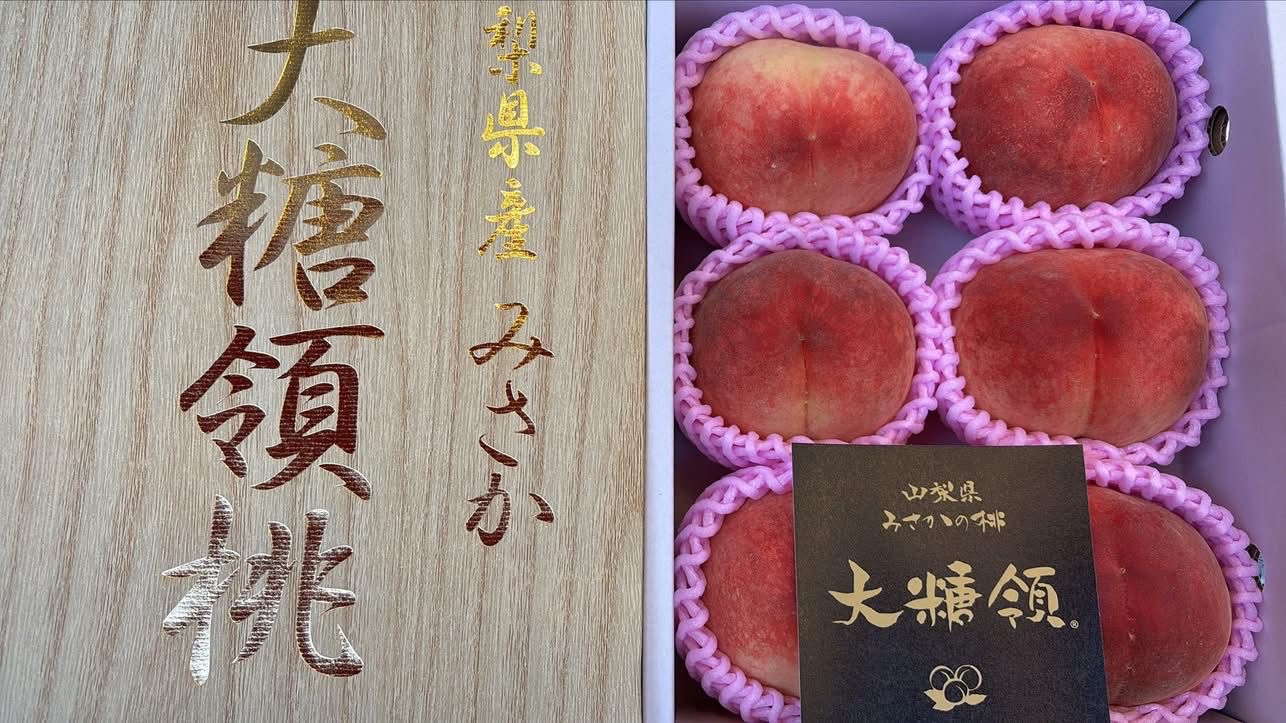 梨県産 みさか
大糖領桃
山梨県
みさかの桃
大糖領®